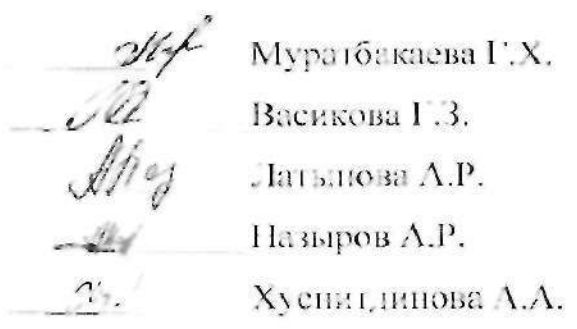 Муратбакаева Г.Х.
Васикова Г.З.
Латыпова А.Р.
Назыров А.Р.
Хуснитдинова А.А.